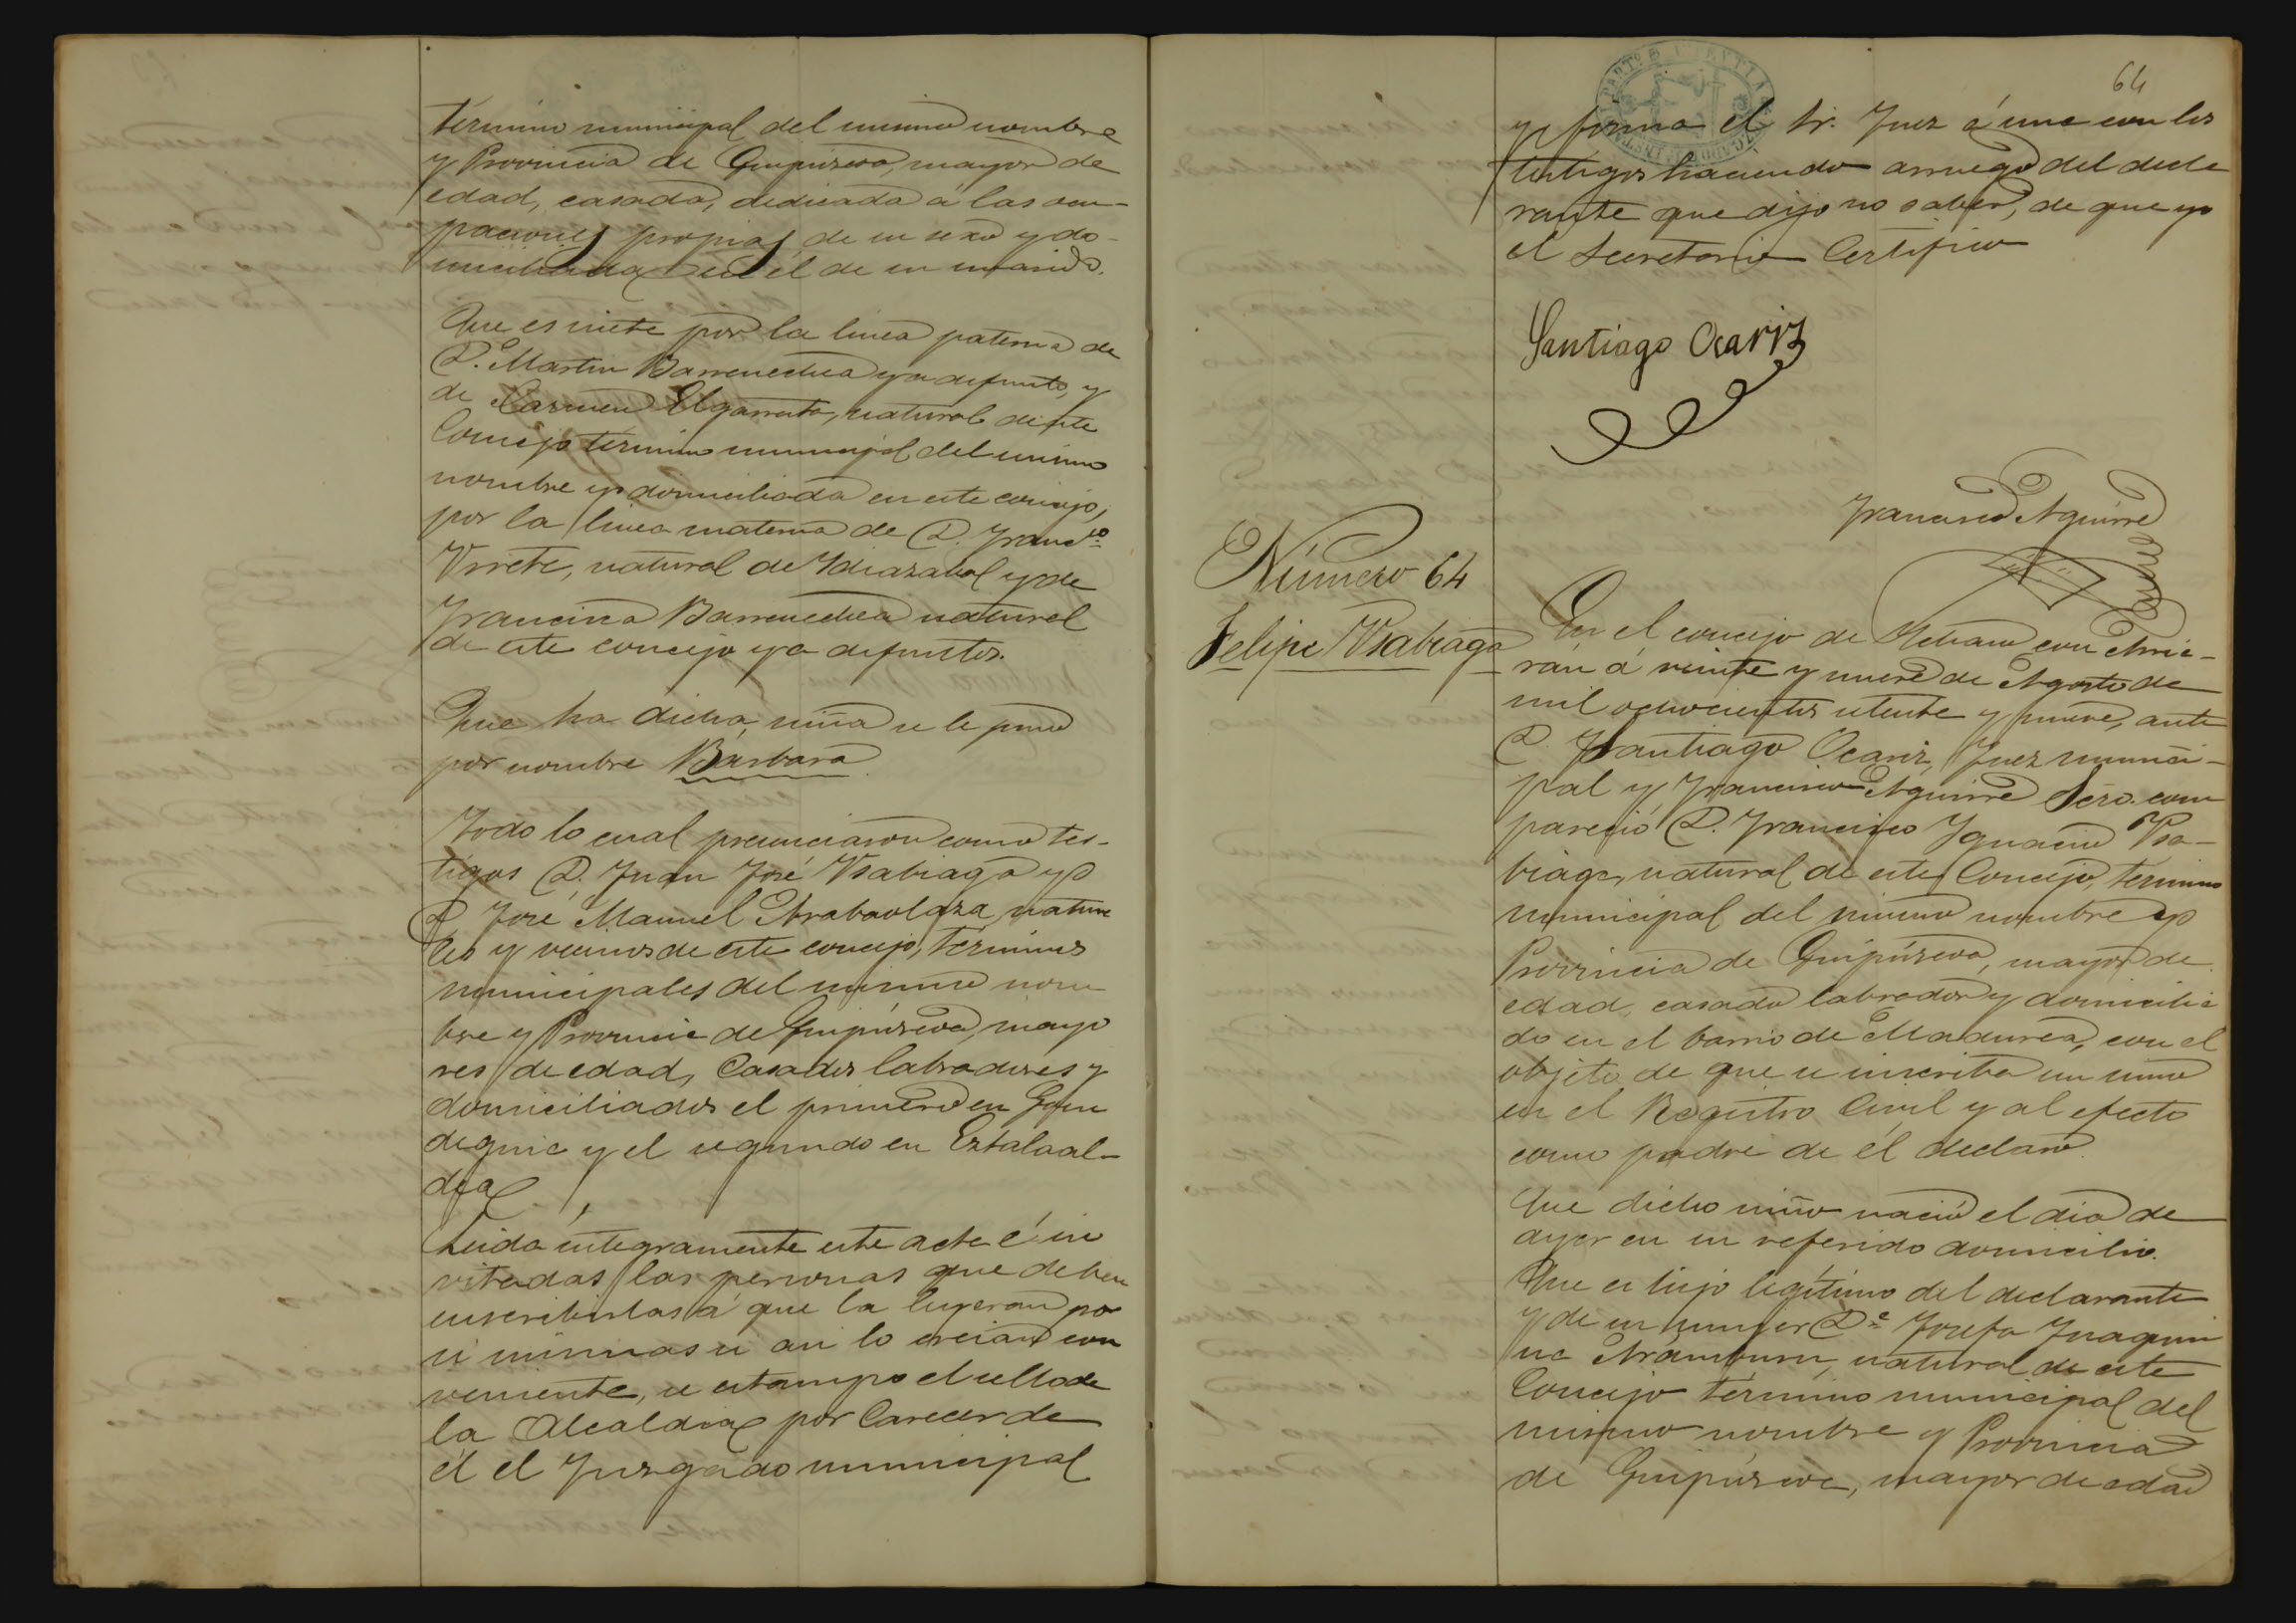 término municipal del mismo nombre
y Provincia de Guipúzcoa, mayor de
edad, casada, dedicada á las ocu-
paciones propias de su sexo y do-
miciliada en el de su marido.
Que es nieta por la linea paterna de
D. Martin Barrenechea ya difunto, y
de Carmen Elgarresta, natural de este
Concejo término municipal del mismo
nombre y domiciliada en este concejo,
por la linea materna de D. Franco
Urrete, natural de Ydiazabal y de
Francisca Barrenechea natural
de este concejo ya difuntos.
Que ha dicha niña se le puso
por nombre Bárbara
Todo lo cual presenciaron como tes-
tigos D. Juan José Usabiaga y
D José Manuel Arabaolaza, natura
les y vecinos de este concejo, términos
municipales del mismo nom
bre y Provincia de Guipúzcoa, mayo
res de edad, Casados labradores y
domiciliados el primero en
y el segundo en Eztalaal-
dea
Leida integramente este acta é in
vitadas las personas que deben
suscribirlas á que la leyeran por
si mismas si asi lo creian con
veniente, se estampo el sello de
la Alcaldia por Carecer de
él el Juzgado municipal
64
y firma el Sr. Juez á una con los
testigos haciendo a ruego del decla
rante que dijo no saber, de que yo
el Secretario Certifico
Santiago Ocariz
Francisco Aguirre
Número 64
Felipe Usabiaga
En el concejo de Ataun con Arrie-
rán á veinte y nueve de Agosto de
mil ochocientos setenta y nueve, ante
D Santiago Ocariz, Juez munici-
pal y Francisco Aguirre Scro. com
pareció D. Francisco Ygnacio Usa-
biaga, natural de este Concejo, término
municipal del mismo nombre y
Provincia de Guipúzcoa, mayor de
edad, casado labrador y domicilia
do en el barrio de Madurea, con el
objeto de que se inscriba un niño
en el Registro Civil y al efecto
como padre de él declaró
Que dicho niño nació el dia de
ayer en su referido domicilio.
Que es hijo legítimo del declarante
y de su mujer Da Josefa Joaqui
na Aramburu, natural de este
Concejo término municipal del
mismo nombre y Provincia
de Guipúzcoa, mayor de edad